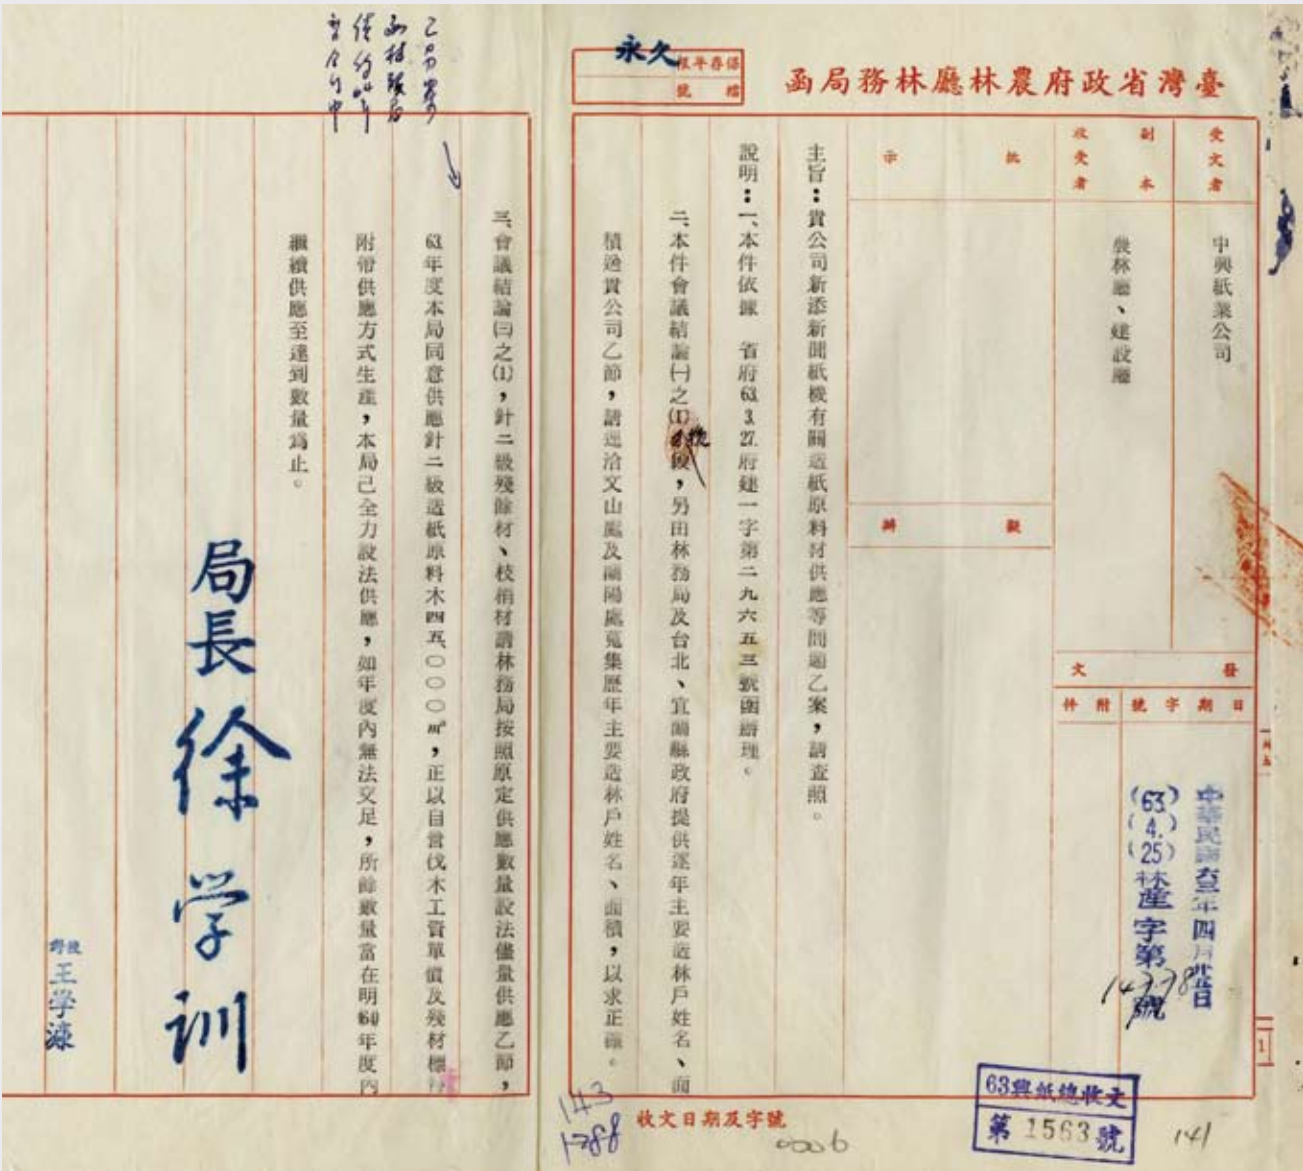 臺灣省政府農林廳林務局函
保存年限
永久
檔號
受文者
中興紙業公司
副本
收受者
農林廳、建設廳
批示
擬辦
發文
日期字號附件
中華民國六三年四月廿五日
(63)(4.)(25)林產字第
號
主旨：貴公司新添新聞紙機有關造紙原料材供應等問題乙案，請查照。
說明：一、本件依據　省府63.3.27.府建一字第二九六五三號函辦理。
二、本件會議結論㈠之(1)，另由林務局及台北、宜蘭縣政府提供逐年主要造林戶姓名、面
積過貴公司乙節，請逕洽文山處及蘭陽處蒐集歷年主要造林戶姓名、面積，以求正確。
三、會議結論㈢之(1)，針二級殘餘材、枝梢材請林務局按照原定供應數量設法儘量供應乙節，
63年度本局同意供應針二級造紙原料木四五、〇〇〇〇m³，正以自營伐木工資單價及殘材標
附帶供應方式生產，本局已全力設法供應，如年度內無法交足，所餘數量當在明64年度內
繼續供應至達到數量為止。
局長徐学訓
王学
收文日期及字號
63興紙總收文
第1563號
143
1788
0006
141
1